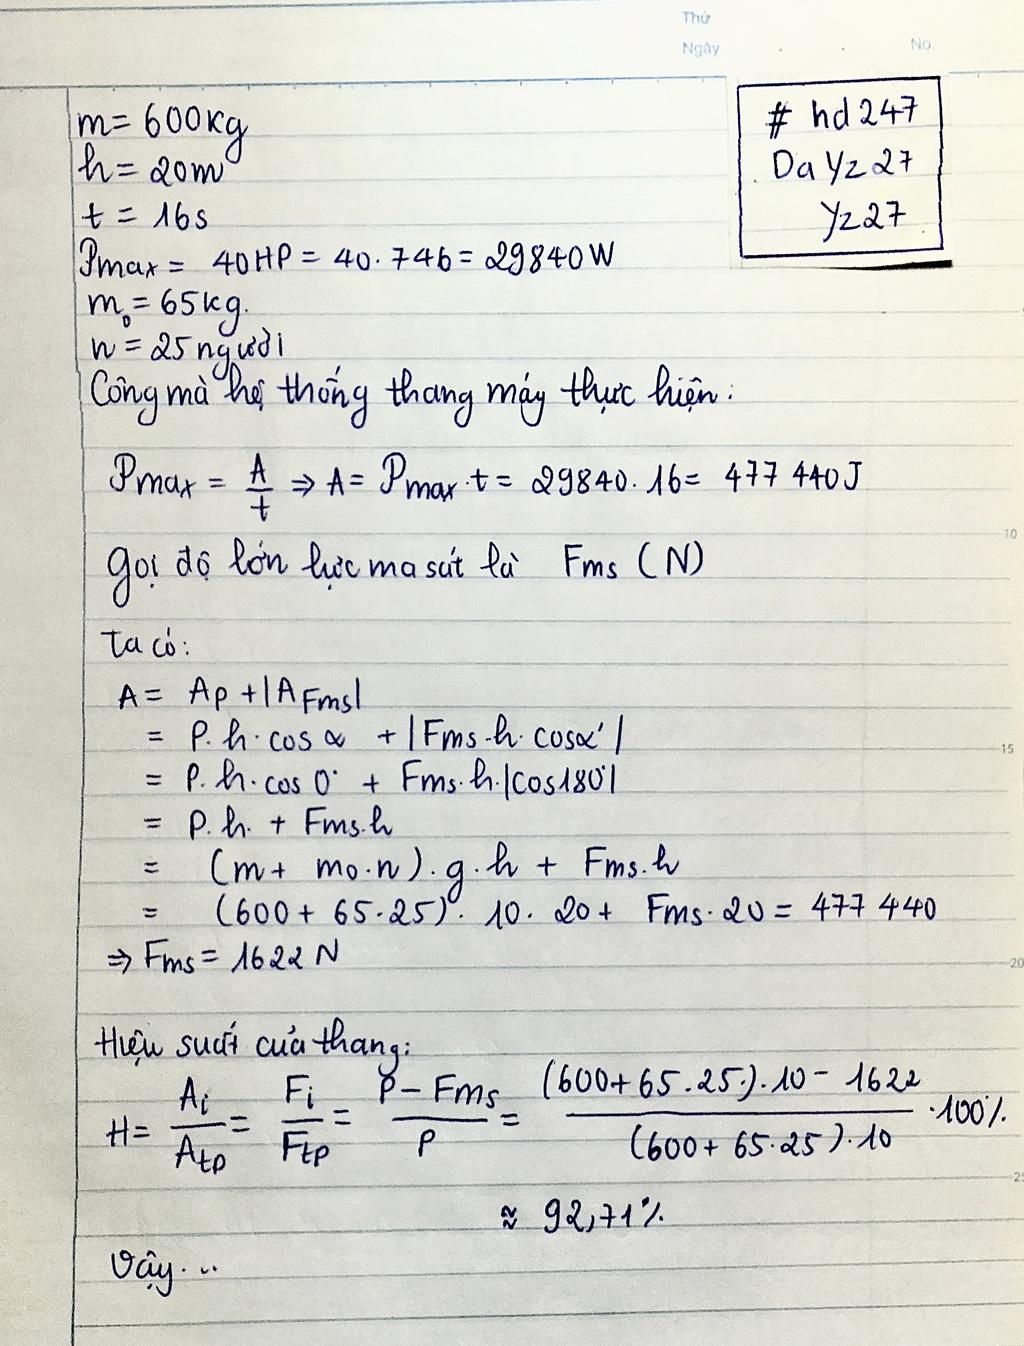 Thứ
Ngày
No.
# hd247
Da Yz27
Yz27
m= 600kg
h= 20m
t = 16s
Pmax = 40HP = 40.746 = 29840W
m₀ = 65kg.
n = 25 người
Công mà hệ thống thang máy thực hiện:
Pmax = A/t ⇒ A = Pmax.t = 29840.16 = 477 440J
gọi độ lớn lực ma sát là Fms (N)
Ta có:
A = Ap + |AFms|
= P.h.cos α + |Fms.h.cosα'|
= P.h.cos 0° + Fms.h.|cos180°|
= P.h. + Fms.h
= (m + mo.n).g.h + Fms.h
= (600 + 65.25). 10. 20 + Fms.20 = 477 440
⇒ Fms = 1622 N
Hiệu suất của thang:
H = Ai/Atp = Fi/Ftp = P - Fms/P = (600+65.25.).10 - 1622/(600+65.25).10 .100%
≈ 92,71%
Vậy...
10
15
20
25